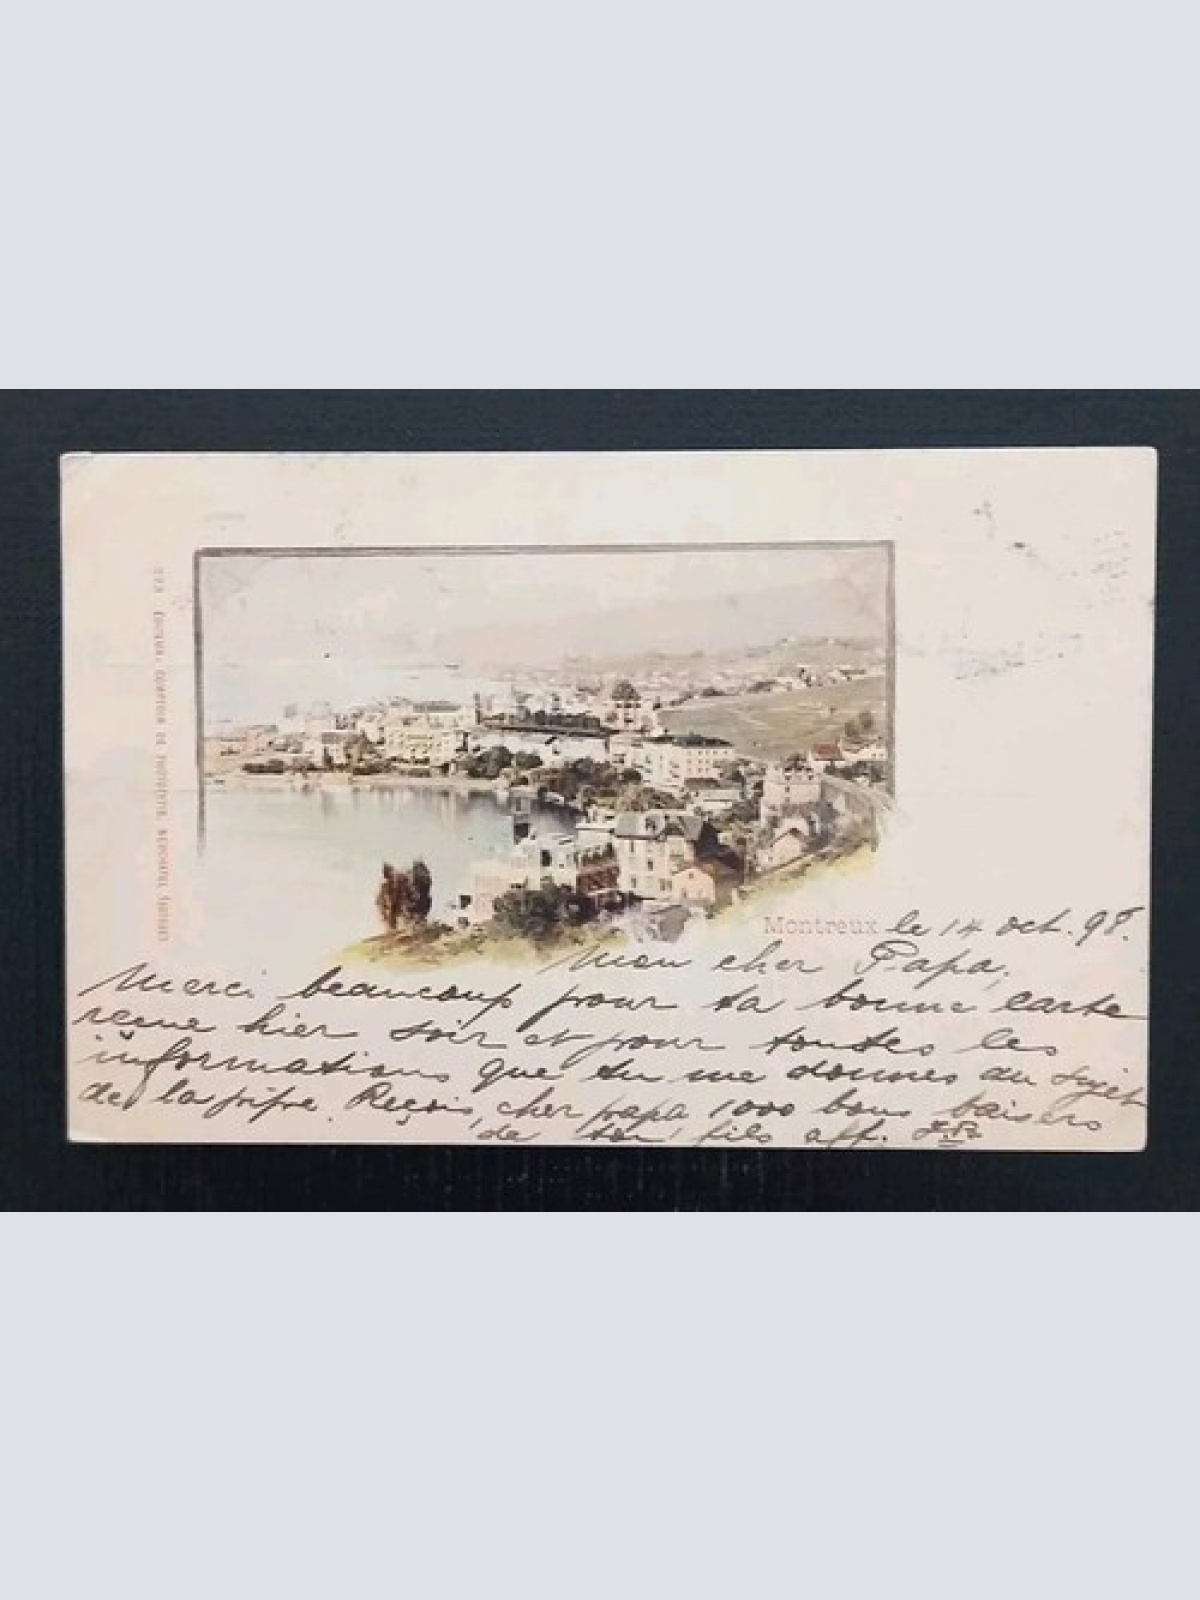 EDITEUR, COMPTOIR DE PHOTOTYPIE, NEUCHATEL (SUISSE)
Montreux le 14 oct. 98.
Mon cher Papa,
Merci beaucoup pour ta bonne carte
reçue hier soir et pour toutes les
informations que tu me donnes au sujet
de la pipe. Reçois, cher papa 1000 bons baisers
de ton fils aff.